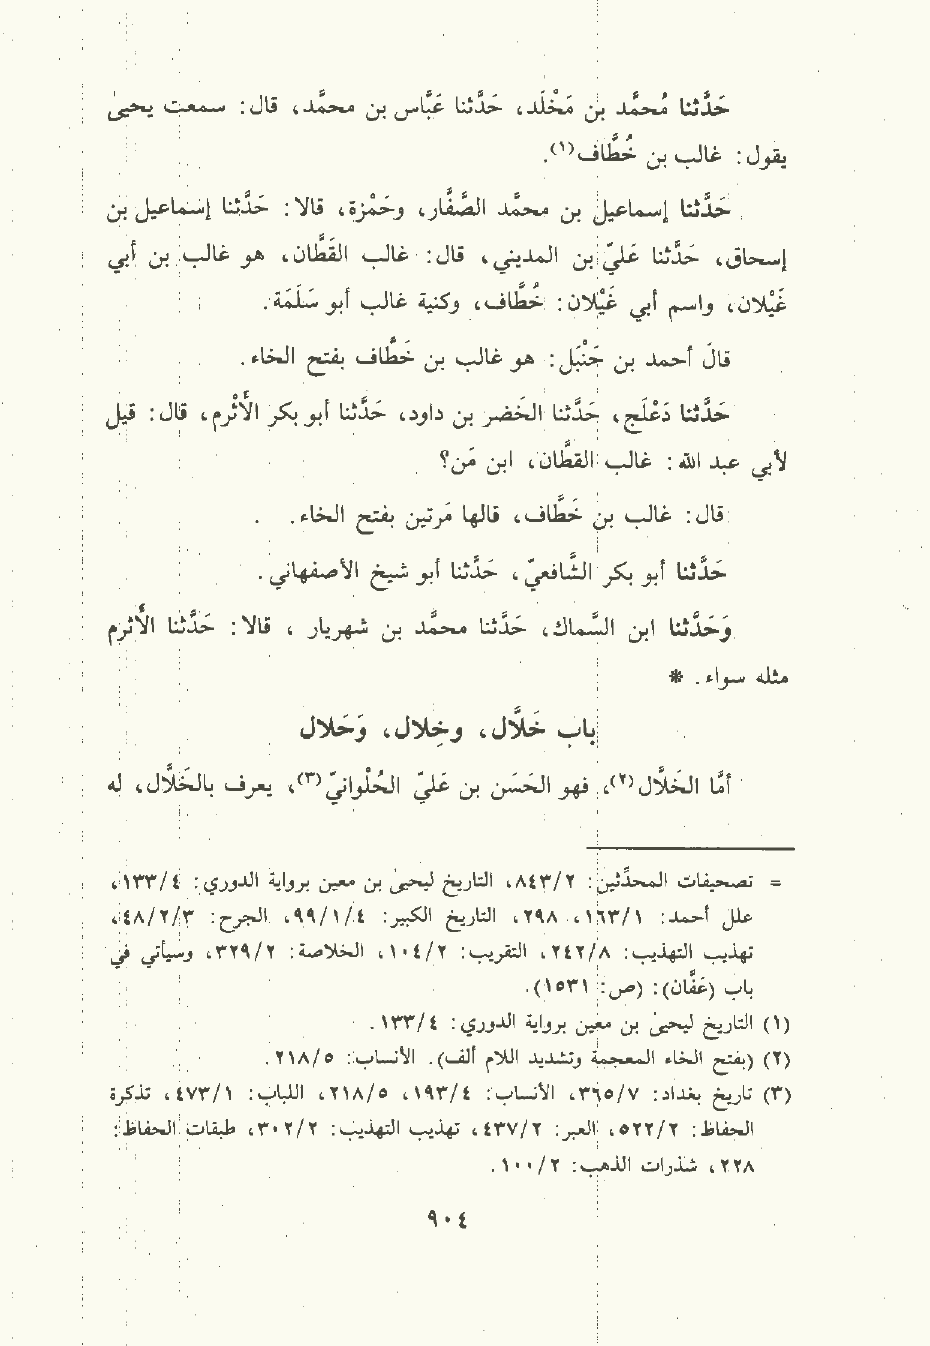 حَدَّثنا مُحمَّد بن مَخْلَد، حَدَّثنا عَبَّاس بن محمَّد، قال: سمعت يحيىٰ
يقول: غالب بن خُطَّاف(١).
حَدَّثنا إسماعيل بن محمَّد الصَّفَّار، وحَمْزة، قالا: حَدَّثنا إسماعيل بن
إسحاق، حَدَّثنا عَليّ بن المديني، قال: غالب القَطَّان، هو غالب بن أبي
غَيْلان، واسم أبي غَيْلان: خُطَّاف، وكنية غالب أبو سَلَمَة.
قالَ أحمد بن حَنْبَل: هو غالب بن خَطَّاف بفتح الخاء.
حَدَّثنا دَعْلَج، حَدَّثنا الخَضر بن داود، حَدَّثنا أبو بكر الأَثْرم، قال: قيل
لأبي عبد الله: غالب القطَّان، ابن مَن؟
قال: غالب بن خَطَّاف، قالها مَرتين بفتح الخاء.
حَدَّثنا أبو بكر الشَّافعيّ، حَدَّثنا أبو شيخ الأصفهاني.
وَحَدَّثنا ابن السَّماك، حَدَّثنا محمَّد بن شهريار، قالا: حَدَّثنا الأَثرم
مثله سواء. *
باب خَلَّال، وخِلال، وَحَلال
أمَّا الخَلَّال(٢)، فهو الحَسَن بن عَليّ الحُلْوانيّ(٣)، يعرف بالخَلَّال، له
= تصحيفات المحدِّثين: ٨٤٣/٢، التاريخ ليحيىٰ بن معين برواية الدوري: ١٣٣/٤،
علل أحمد: ١٦٣/١، ٢٩٨، التاريخ الكبير: ٩٩/١/٤، الجرح: ٤٨/٢/٣،
تهذيب التهذيب: ٢٤٢/٨، التقريب: ١٠٤/٢، الخلاصة: ٣٢٩/٢، وسيأتي في
باب (عَفَّان): (ص: ١٥٣١).
(١) التاريخ ليحيىٰ بن معين برواية الدوري: ١٣٣/٤.
(٢) (بفتح الخاء المعجمة وتشديد اللام ألف). الأنساب: ٢١٨/٥.
(٣) تاريخ بغداد: ٣٦٥/٧، الأنساب: ١٩٣/٤، ٢١٨/٥، اللباب: ٤٧٣/١، تذكرة
الحفاظ: ٥٢٢/٢، العبر: ٤٣٧/٢، تهذيب التهذيب: ٣٠٢/٢، طبقات الحفاظ:
٢٢٨، شذرات الذهب: ١٠٠/٢.
٩٠٤